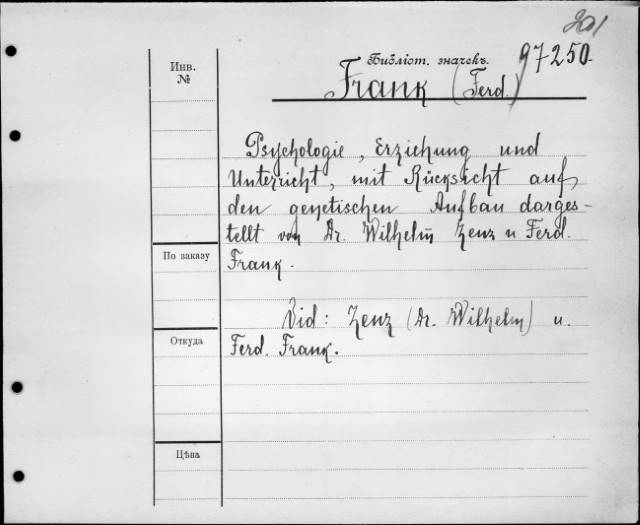 201
Библіот. значекъ. 97250.
Frank (Ferd.)
Инв.
№
Psychologie, Erziehung und
Unterricht, mit Rücksicht auf
den genetischen Aufbau darges-
tellt von Dr. Wilhelm Zenz u Ferd.
Frank.
По заказу
Vid: Zenz (Dr. Wilhelm) u.
Ferd. Frank.
Откуда
Цѣна